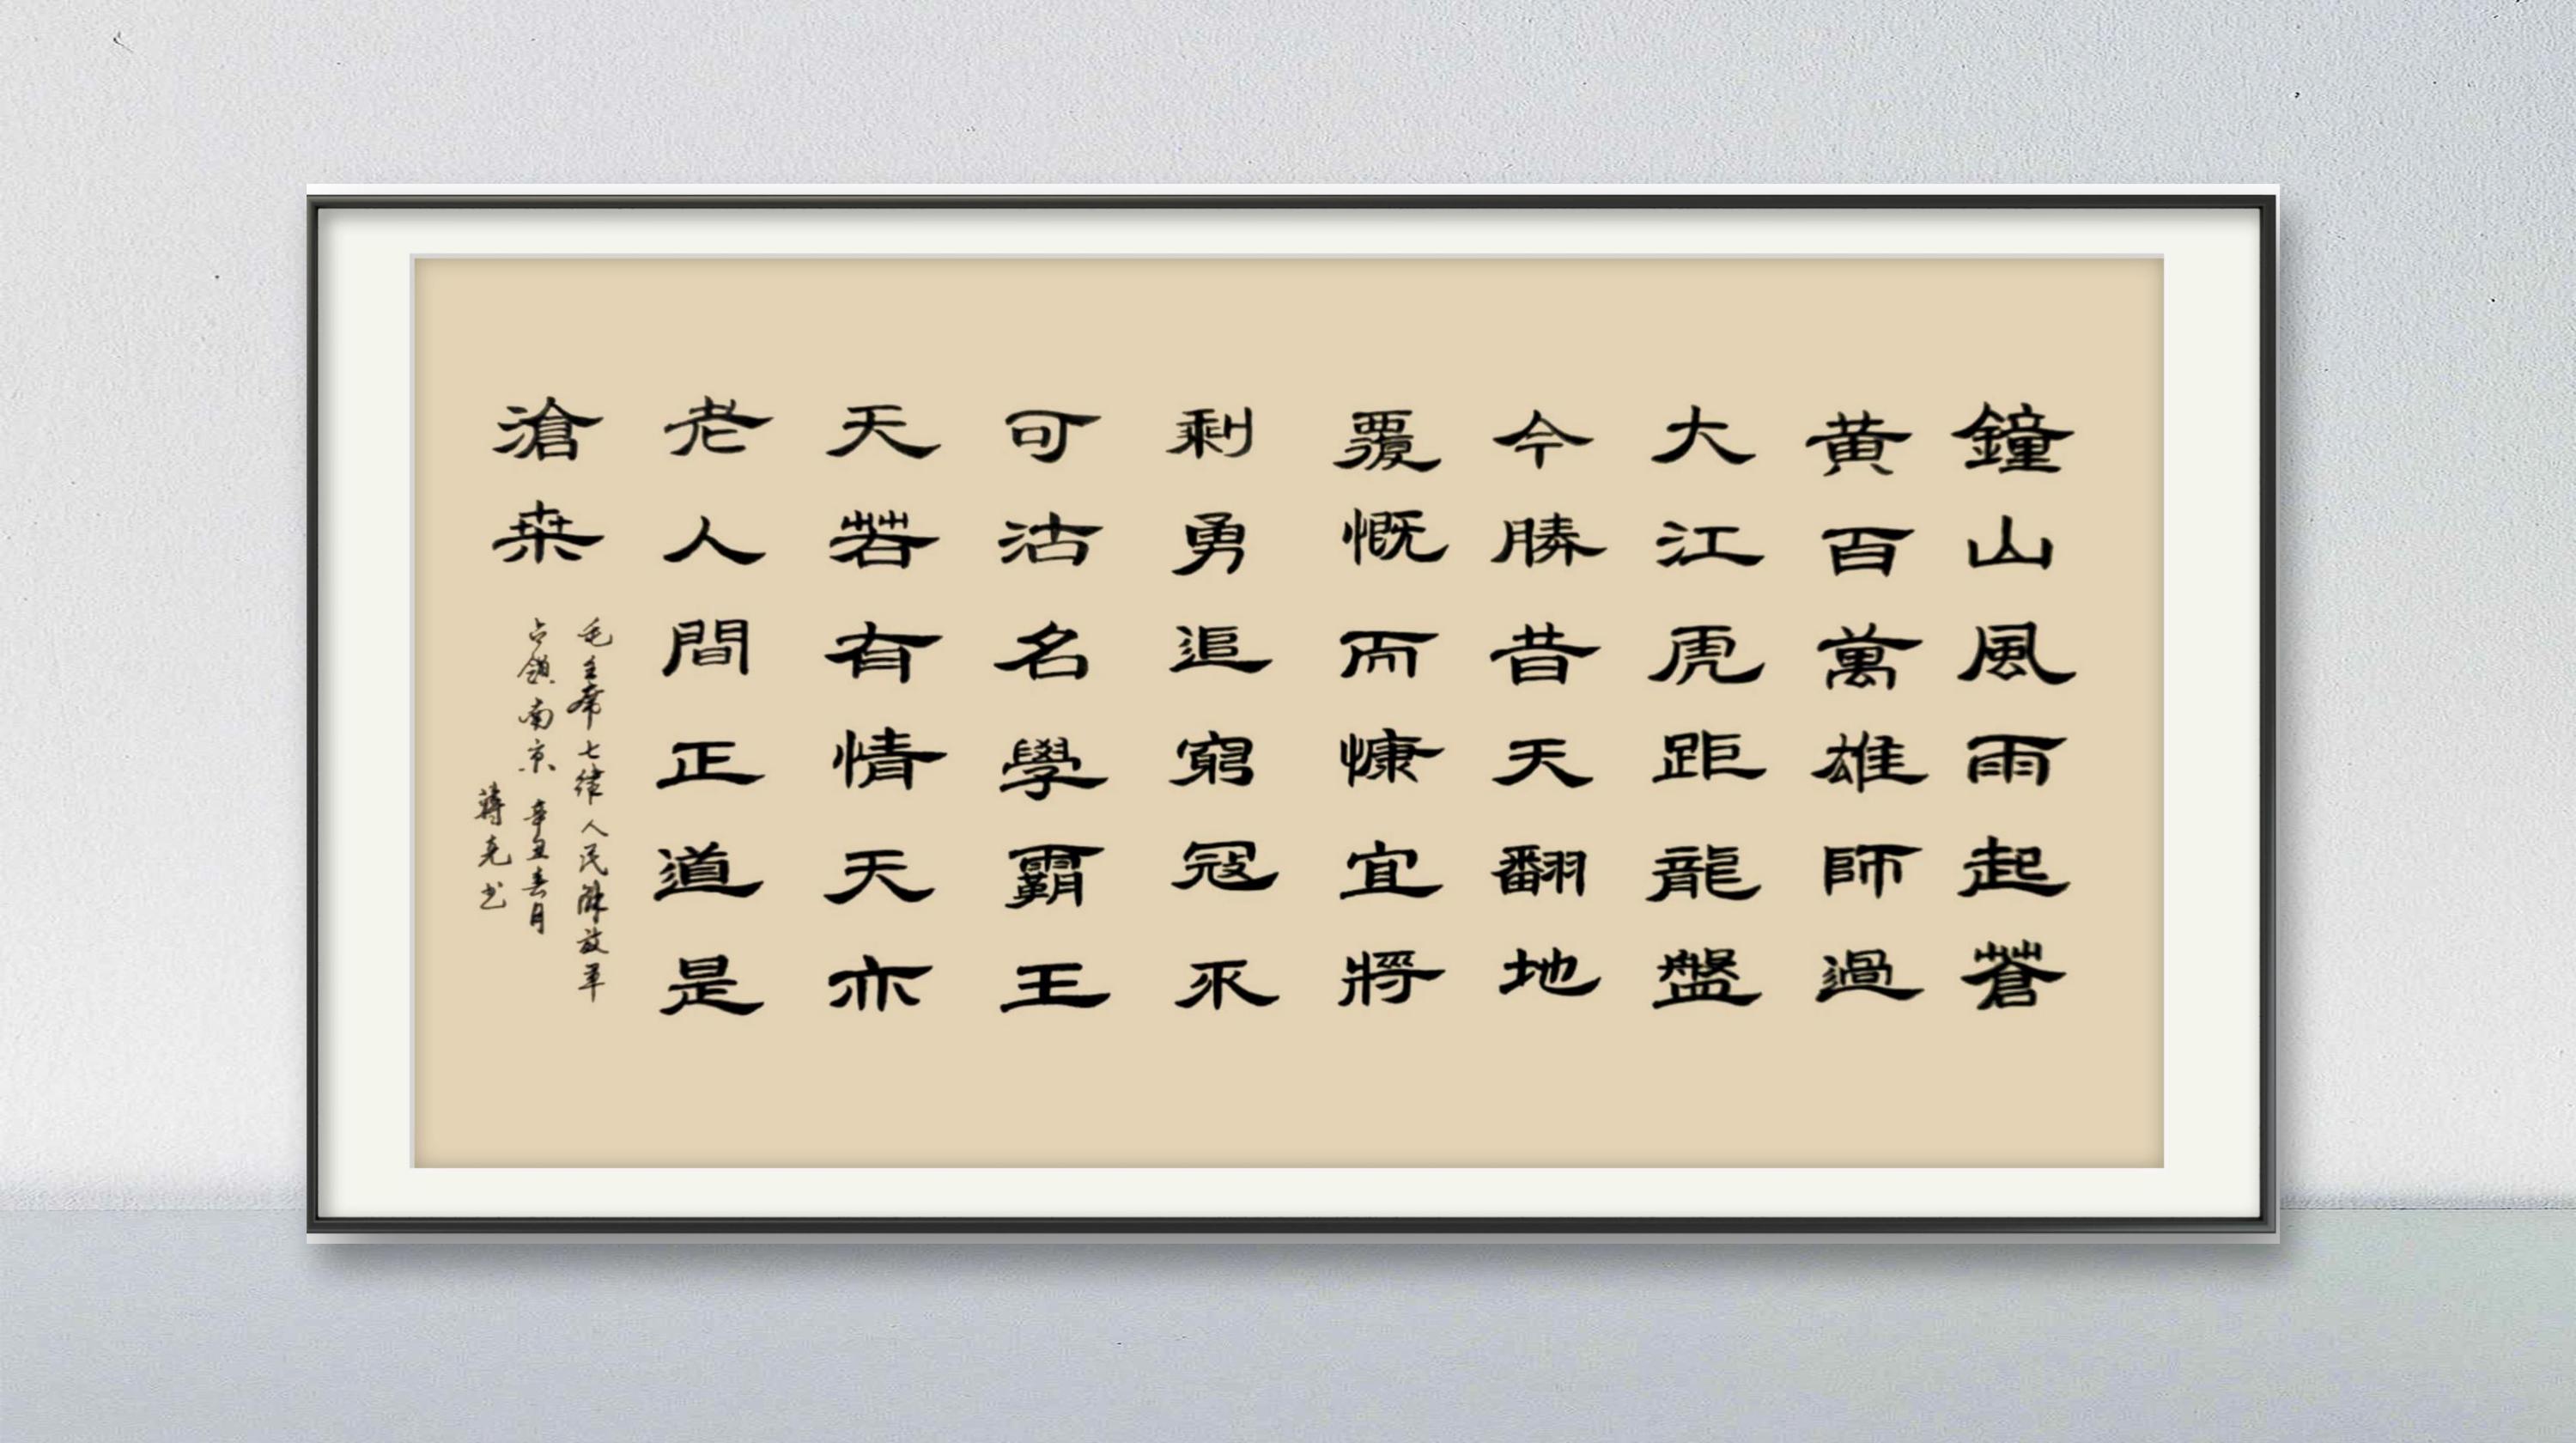 鐘山風雨起蒼
黄百萬雄師過
大江虎距龍盤
今勝昔天翻地
覆慨而慷宜將
剩勇追窮冦不
可沽名學霸王
天若有情天亦
老人間正道是
滄桒
毛主席七律人民解放军
占領南京 辛丑春月
蔣尧书